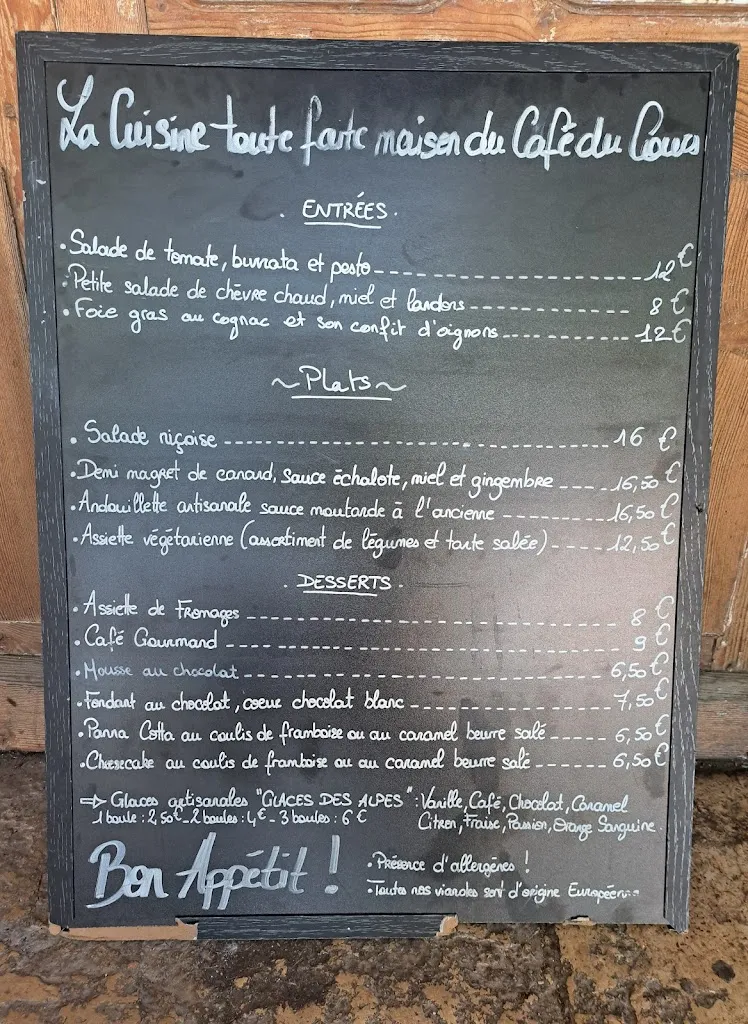 La Cuisine toute faite maison du Café du Cours
. ENTRÉES .
• Salade de tomate, burrata et pesto 12 €
• Petite salade de chèvre chaud, miel et lardons 8 €
• Foie gras au cognac et son confit d'oignons 12 €
~ Plats ~
• Salade niçoise 16 €
• Demi magret de canard, sauce échalote, miel et gingembre 16,50 €
• Andouillette artisanale sauce moutarde à l'ancienne 16,50 €
• Assiette végétarienne (assortiment de légumes et tarte salée) 12,50 €
. DESSERTS .
• Assiette de Fromages 8 €
• Café Gourmand 9 €
• Mousse au chocolat 6,50 €
• Fondant au chocolat, coeur chocolat blanc 7,50 €
• Panna Cotta au coulis de framboise ou au caramel beurre salé 6,50 €
• Cheesecake au coulis de framboise ou au caramel beurre salé 6,50 €
⇨ Glaces artisanales "GLACES DES ALPES" : Vanille, Café, Chocolat, Caramel
1 boule : 2,50€ - 2 boules : 4€ - 3 boules : 6 € Citron, Fraise, Passion, Orange Sanguine.
Bon Appétit !
• Présence d'allergènes !
• Toutes nos viandes sont d'origine Européenne